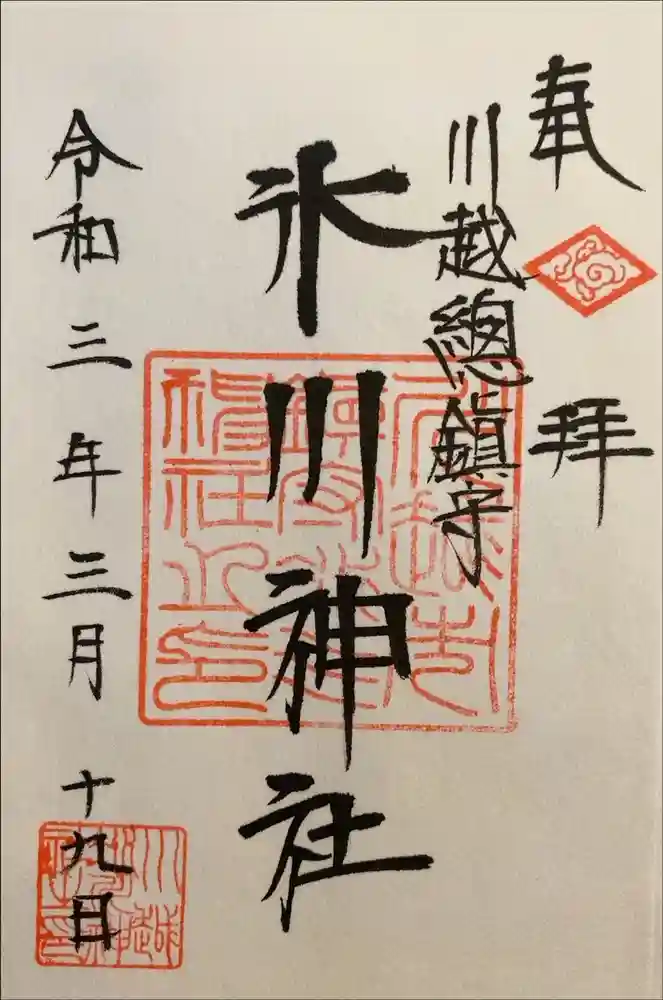 奉拝
川越總鎮守
氷川神社
令和三年三月十九日